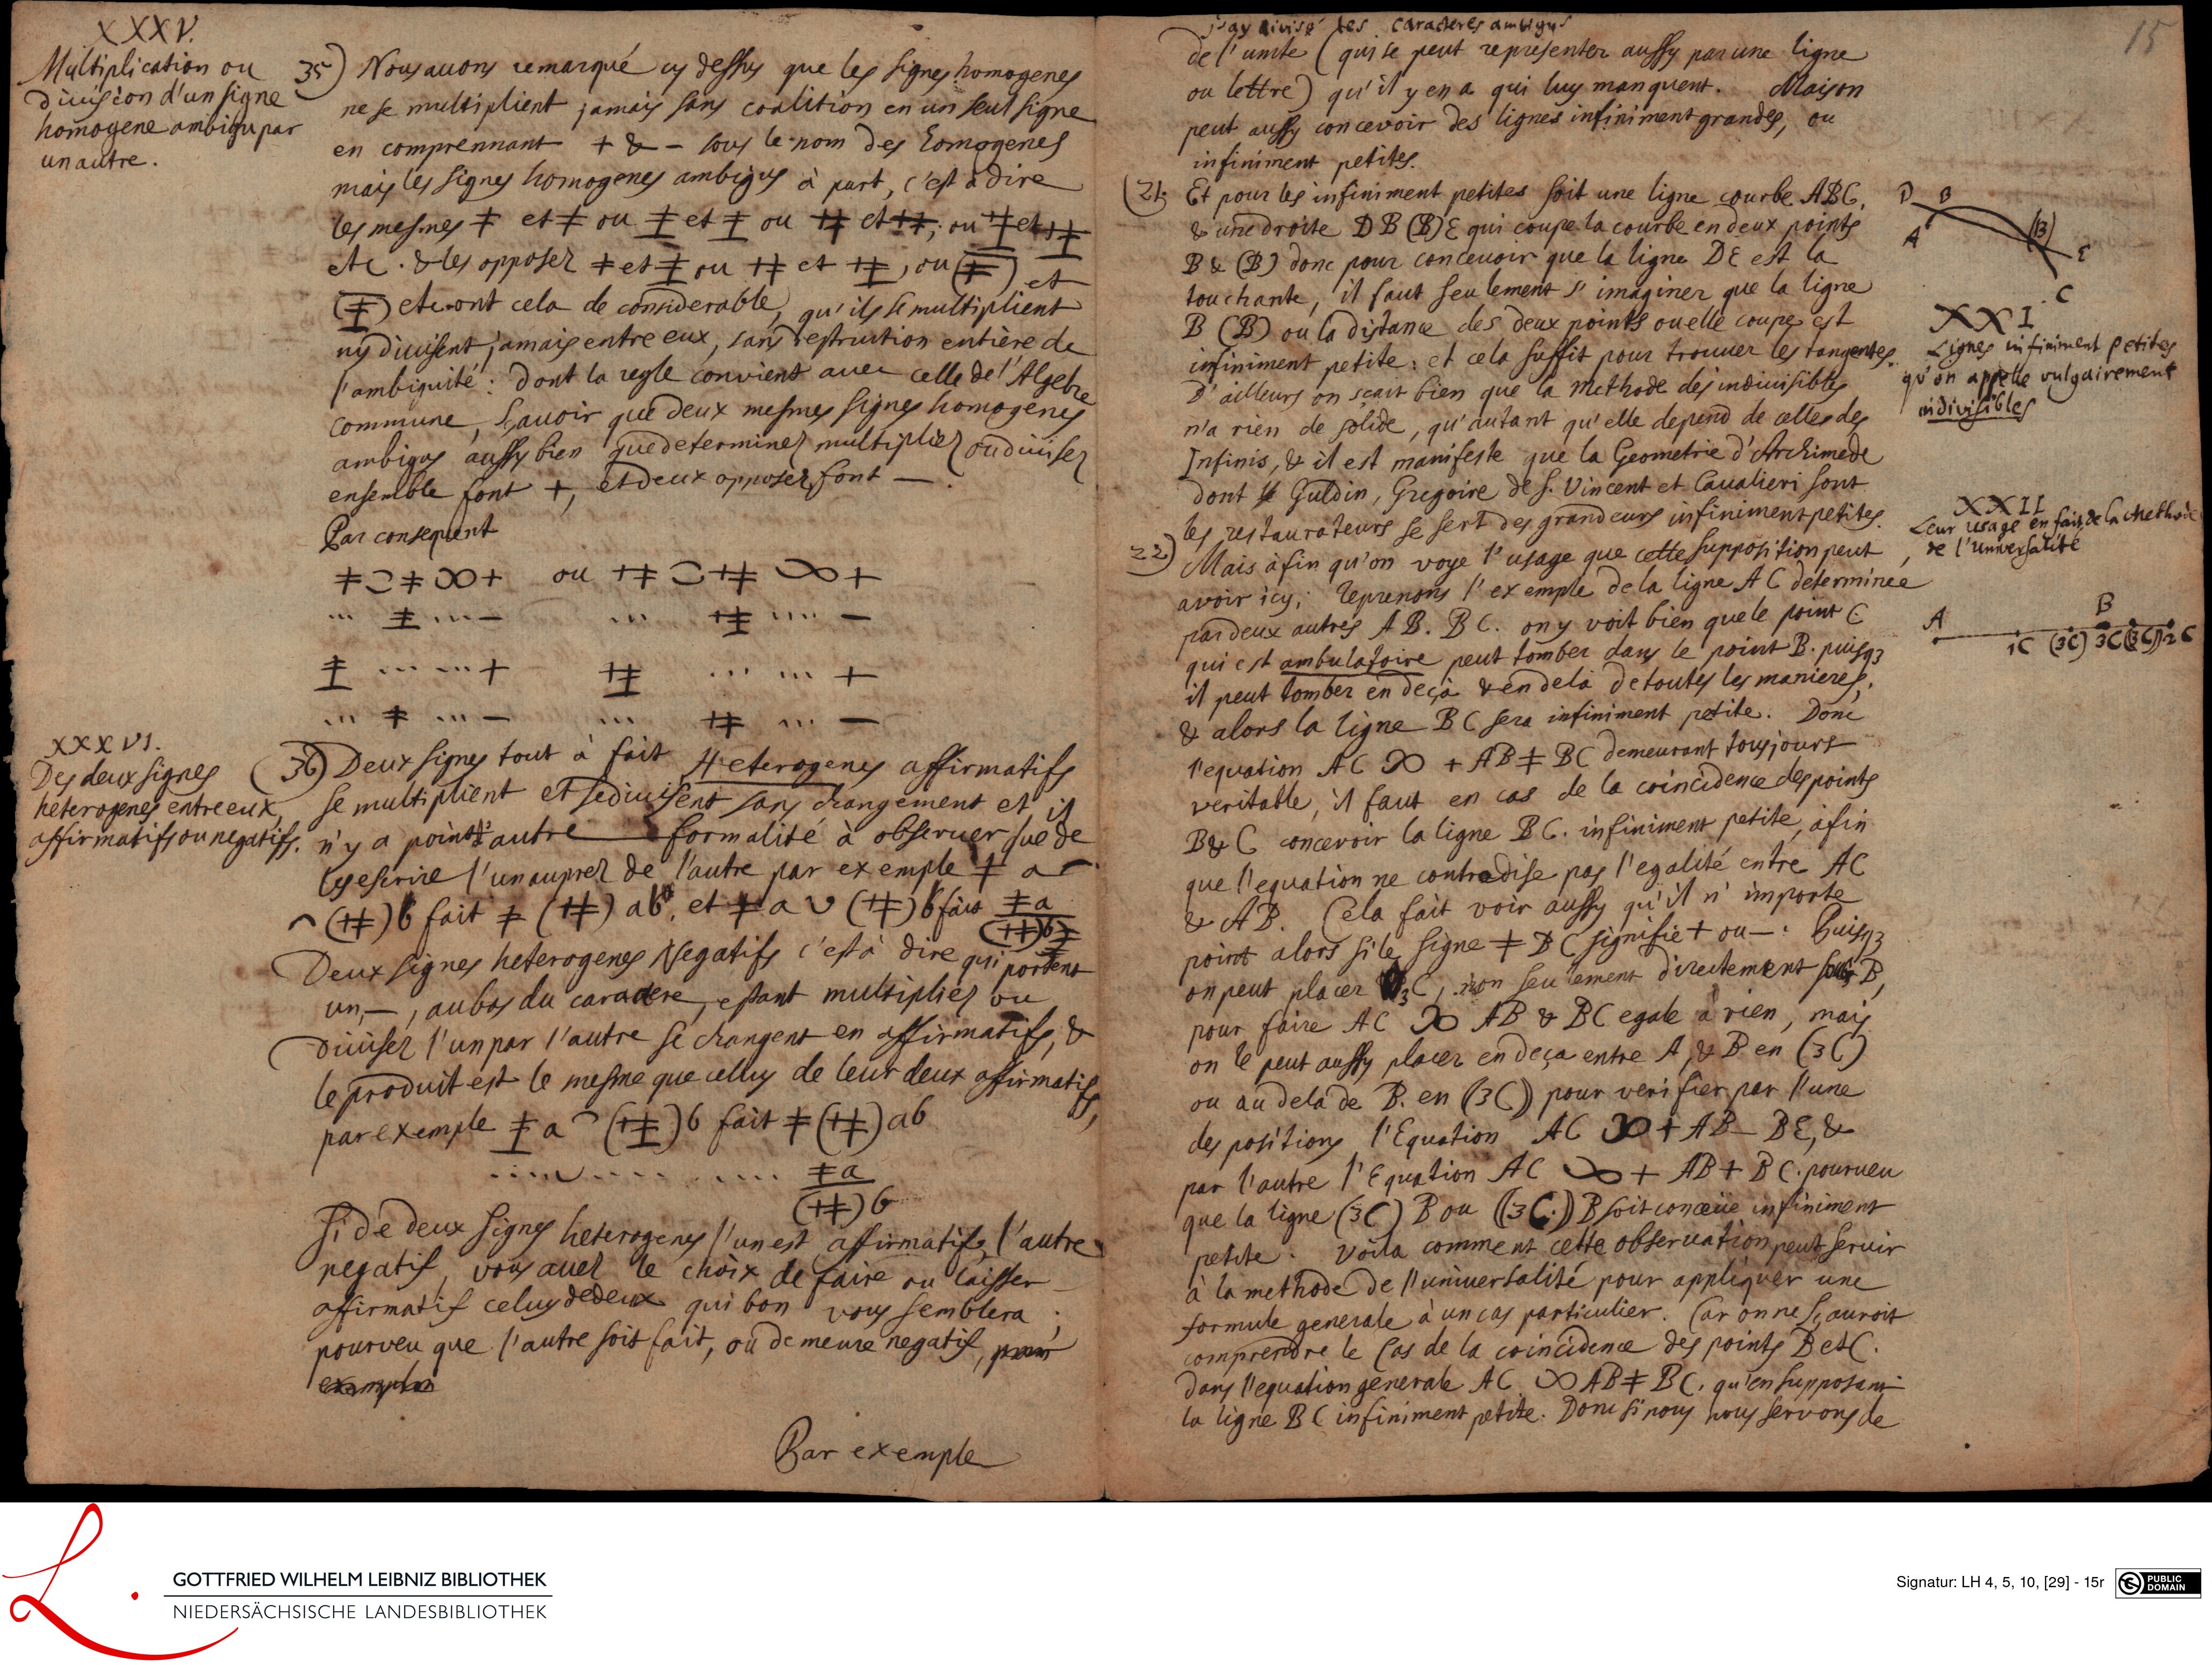 XXXV.
Multiplication ou
division d'un signe
homogene ambigu par
un autre.
35) Nous avons remarqué cy dessus que les signes homogenes
ne se multiplient jamais sans coalition en un seul signe
en comprennant + & – sous le nom des homogenes
mais les signes homogenes ambigus à part, c'est à dire
les mesmes ǂ et ǂ ou
etc. & les opposez
etc. ont cela de considerable, qu'ils se multiplient
ny divisent jamais entre eux, sans destruction entière de
l'ambiguité: dont la regle convient avec celle de l'Algebre
commune, sçavoir que deux mesmes signes homogenes
ambigus aussy bien que determinez multipliez ou divisez
ensemble font +, et deux opposez font —.
Par consequent
XXXVI.
Des deux signes
heterogenes entre eux,
affirmatifs ou negatifs.
(36) Deux signes tout à fait Heterogenes affirmatifs
se multiplient et se divisent sans changement et il
n'y a point d'autre formalité à observer que de
les escrire l'un auprez de l'autre par exemple ǂ a
⌢ (++̳) b fait ǂ (++̳) ab, et ǂ a ᴗ (++̳) b fait ǂa
(++̳)b
Deux signes heterogenes Negatifs c'est à dire qui portent
un, —, au bas du caractere, estant multipliez ou
divisez l'un par l'autre se changent en affirmatifs, &
le produit est le mesme que celuy de leur deux affirmatifs,
par exemple ǂ̲ a ⌢ (++̳) b fait ǂ (++̳) ab
..... ᴗ .... ..... ǂa
(++̳) b
Si de deux signes heterogenes l'un est affirmatif, l'autre
negatif, vous avez le choix de faire ou laisser
affirmatif celuy de deux qui bon vous semblera;
pourveu que l'autre soit fait, ou demeure negatif, pour
exemple
Par exemple
15
j'ay divisé les caracteres ambigus
de l'unite (qui se peut representer aussy par une ligne
ou lettre) qu'il y en a qui luy manquent. Mais on
peut aussy concevoir des lignes infiniment grandes, ou
infiniment petites.
(21. Et pour les infiniment petites soit une ligne courbe ABC,
& une droite DB(B)E qui coupe la courbe en deux points
B & (B) donc pour concevoir que la ligne DE est la
touchante, il faut seulement s'imaginer que la ligne
B (B) ou la distance des deux points ou elle coupe est
infiniment petite: et cela suffit pour trouver les tangentes.
D'ailleurs on scait bien que la methode des indivisibles
n'a rien de solide, qu'autant qu'elle depend de celles des
Infinis, & il est manifeste que la Geometrie d'Archimede
dont Guldin, Gregoire de S. Vincent et Cavalieri sont
les restaurateurs se sert des grandeurs infiniment petites.
D B
A (B) E
C
XXI
Lignes infiniment petites
qu'on appelle vulgairement
indivisibles
XXII
Leur usage en fait de la Methode
de l'universalité
22) Mais àfin qu'on voye l'usage que cette supposition peut
avoir icy; reprenons l'exemple de la ligne AC determinée
par deux autres AB. BC. on y voit bien que le point C
qui est ambulatoire peut tomber dans le point B. puisq3
il peut tomber en deçà & en delà de toutes les manieres;
& alors la ligne BC sera infiniment petite. Donc
l'equation AC ∞ + AB ǂ BC demeurant tousjours
veritable, il faut en cas de la coincidence des points
B & C concevoir la ligne BC. infiniment petite, àfin
que l'equation ne contredise pas l'egalité entre AC
& AB. Cela fait voir aussy qu'il n'importe
point alors si le signe ǂ BC signifie + ou —. Puisq3
on peut placer 3C, non seulement directement sous B,
pour faire AC ∞ AB & BC egale à rien, mais
on le peut aussy placer en deça entre A, & B en (3C)
ou au delà de B. en ((3C)) pour verifier par l'une
des positions l'Equation AC ∞ + AB – BC, &
par l'autre l'Equation AC ∞ + AB + BC. pourveu
que la ligne (3C) B ou ((3C)) B soit conceüe infiniment
petite. Voila comment cette observation peut servir
à la methode de l'universalité pour appliquer une
formule generale à un cas particulier. Car on ne sçauroit
comprendre le cas de la coincidence des points B et C.
dans l'equation generale AC ∞ AB ǂ BC. qu'en supposant
la ligne BC infiniment petite. Donc si nous nous servons de
A B
1C (3C) 3C ((3C)) 2C
GOTTFRIED WILHELM LEIBNIZ BIBLIOTHEK
NIEDERSÄCHSISCHE LANDESBIBLIOTHEK
Signatur: LH 4, 5, 10, [29] - 15r
PUBLIC DOMAIN